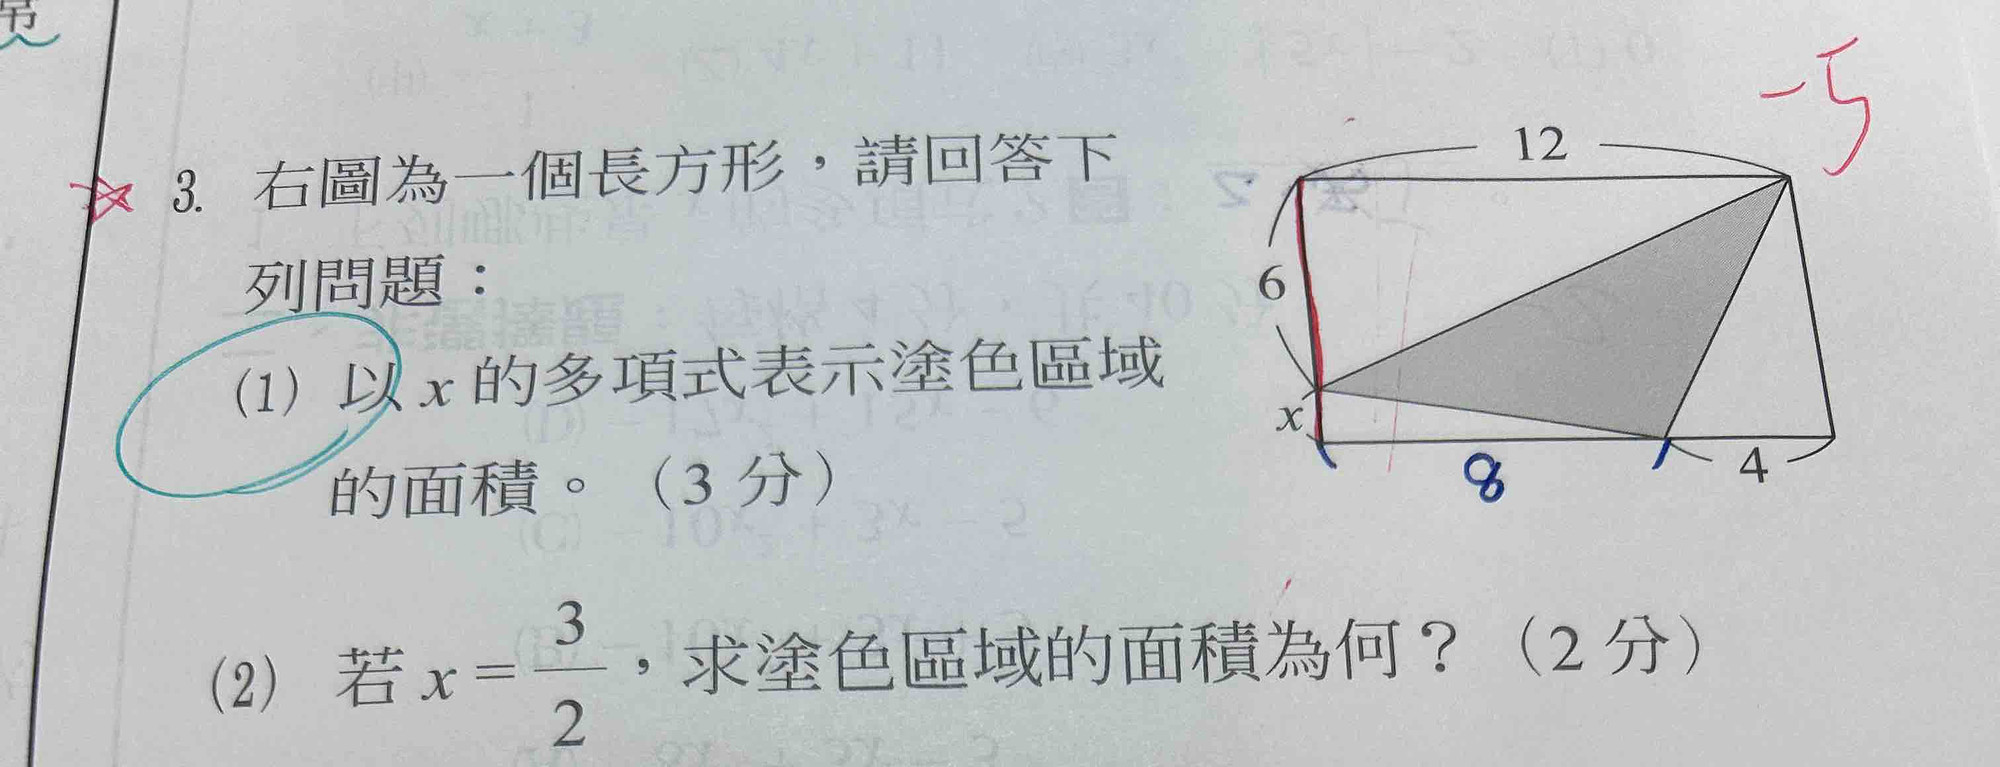 -5
3. 右圖為一個長方形，請回答下
列問題：
(1) 以 x 的多項式表示塗色區域
的面積。（3 分）
(2) 若 x = 3/2，求塗色區域的面積為何？（2 分）
12
6
x
8
4